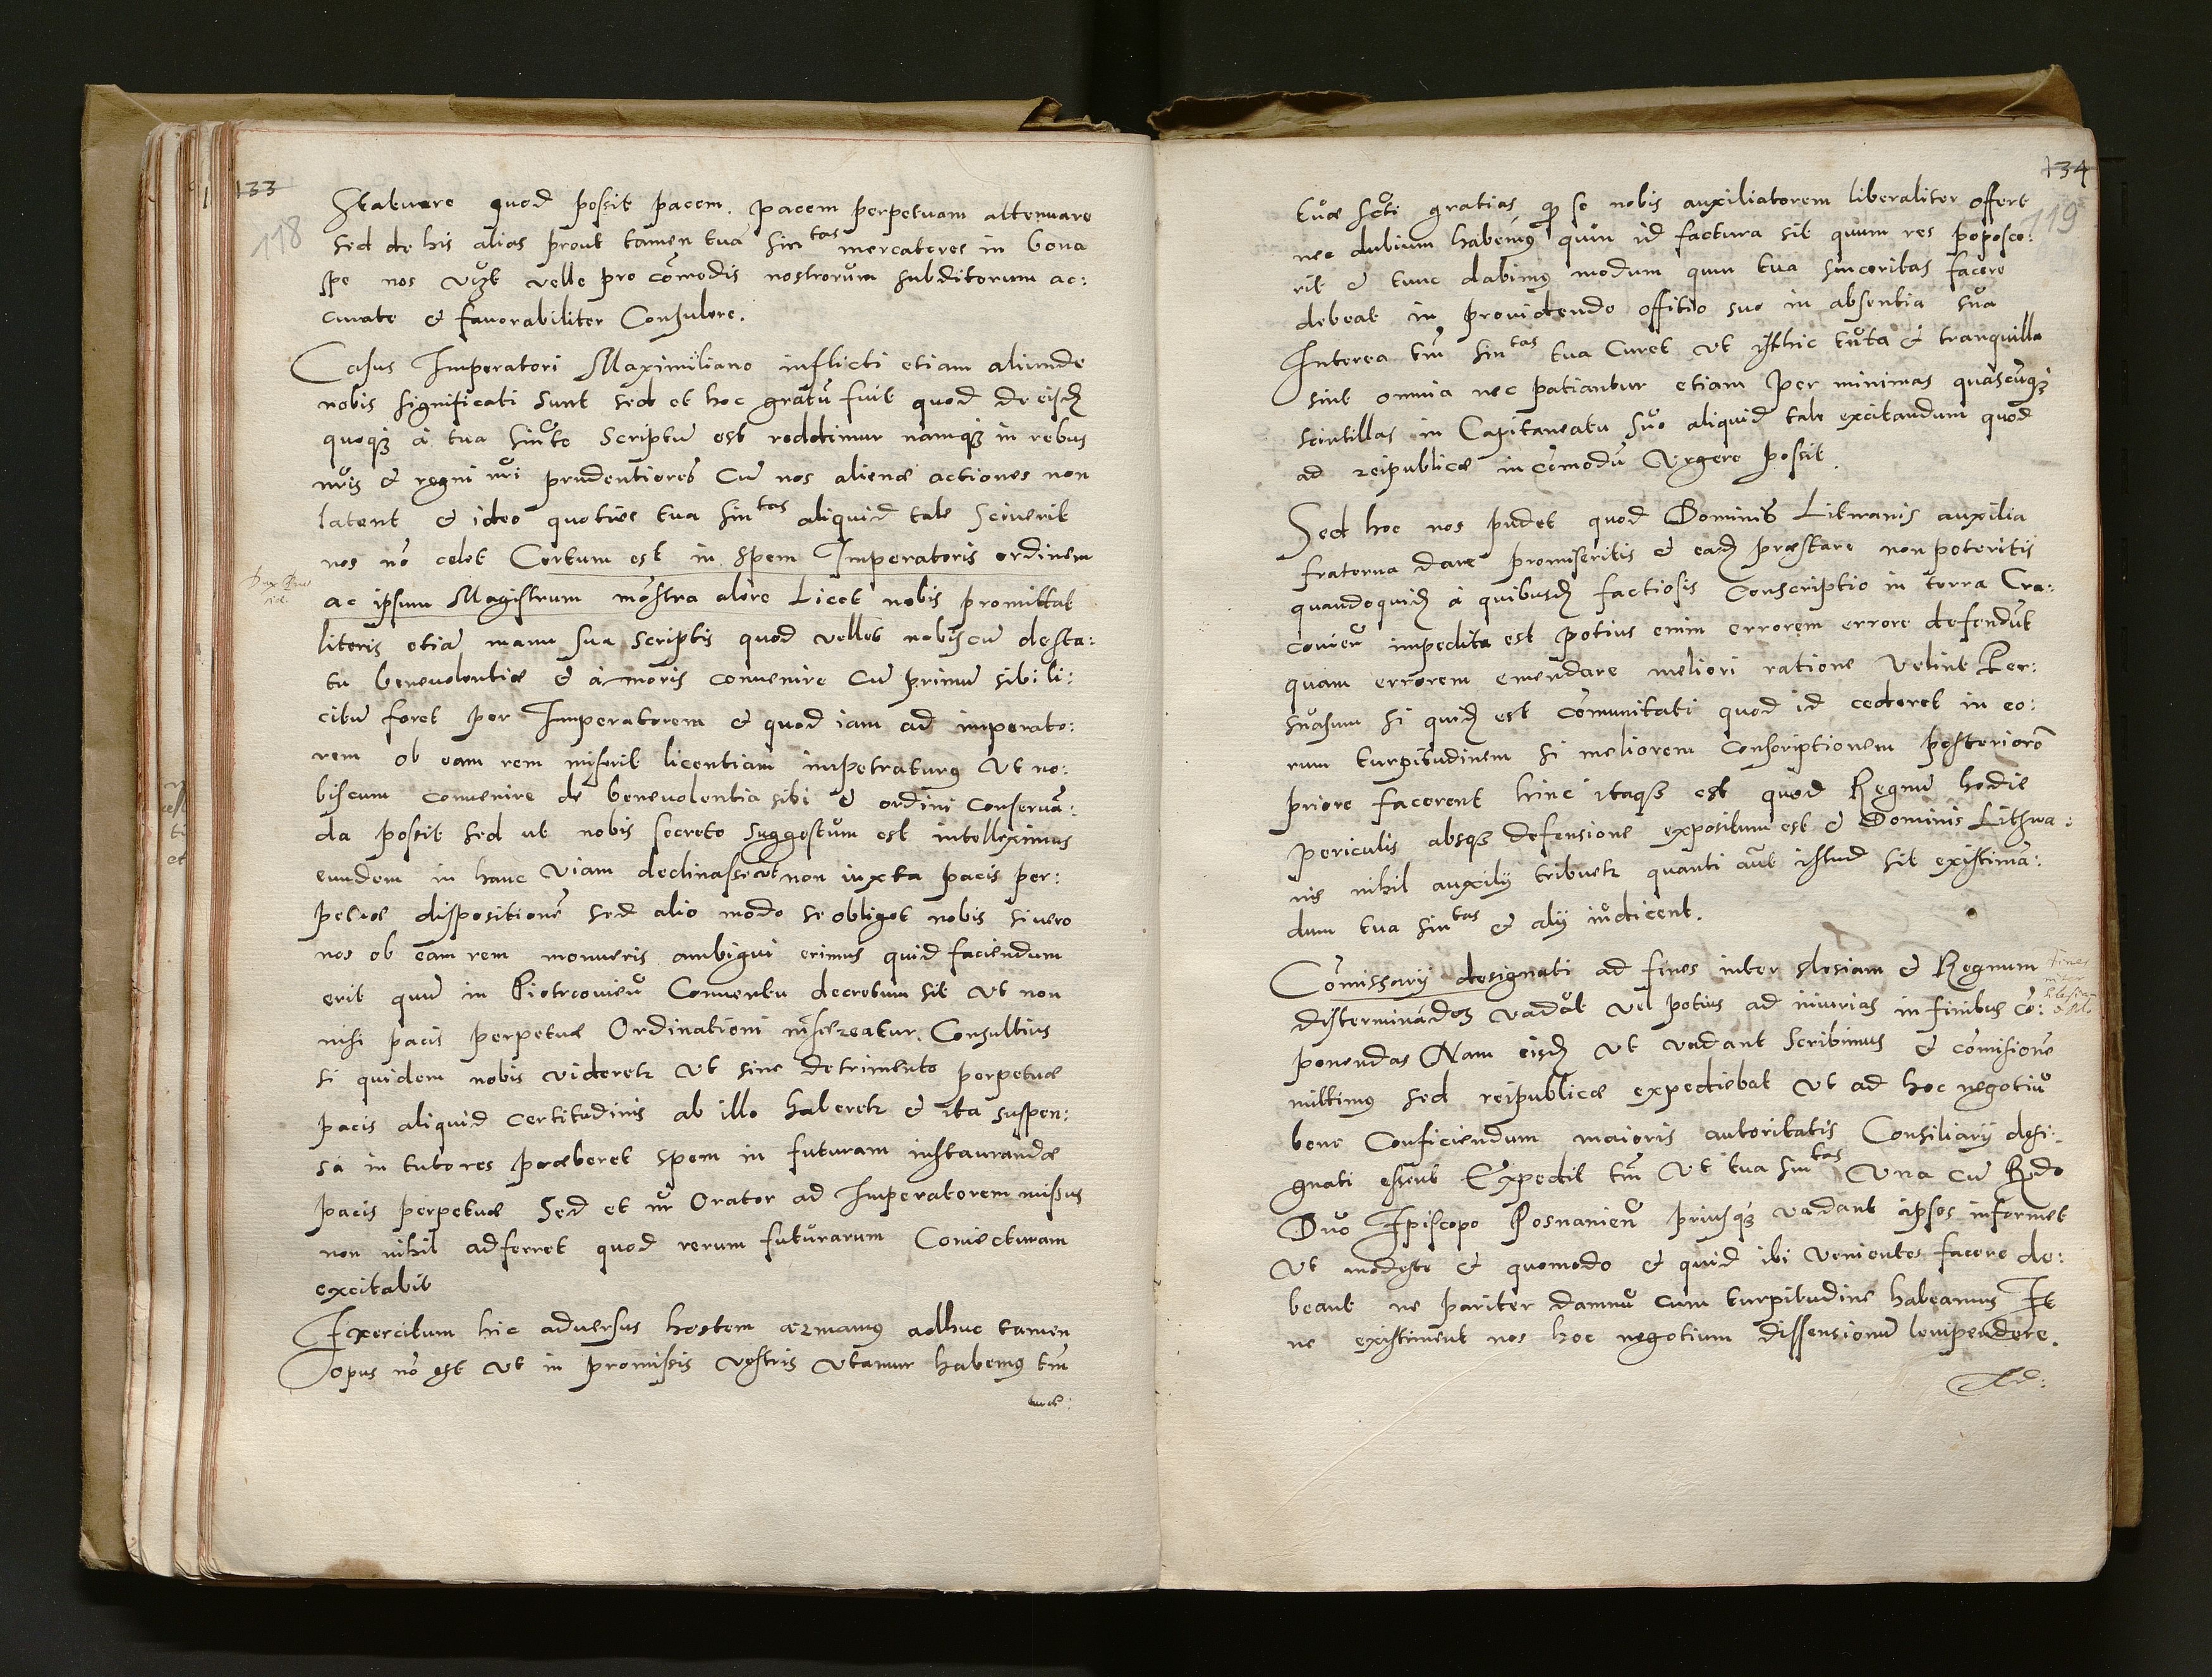 133
118
Statuere quod possit pacem. pacem perpetuam attenuare
sed de his alias prout tamen tua sintas mercatores in bona
spe nos velle pro cōmodis nostrorum subditorum ac:
curate & favorabiliter Consulere.
Casus Imperatori Maximiliano inflicti etiam aliunde
nobis significati sunt sed et hoc gratū fuit quod de eisd
quoqз á tua sinto scriptū est reddimur namqз in rebus
nris & regni nri prudentiores Cū nos alienæ actiones non
latent & ideo quoties tua sintas aliquid tale sciverit
nos nō celet Certum est in spem Imperatoris ordinem
ac ipsum Magistrum mōstra alere Licet nobis promittat
literis etiā manu sua scriptis quod vellet nobiscū desta:
tu benevolentiæ & á moris convenire Cū primū sibi li:
citū foret per Imperatorem & quod iam ad imperato:
rem ob eam rem miserit licentiam impetraturus Ut no:
biscum convenire de benevolentia sibi & ordini conservā:
da possit sed ut nobis secreto suggestum est intelleximus
eundem in hanc viam declinasse ut non iuxta pacis per:
petuæ dispositionē sed alio modo se obliget nobis si vero
nos ob eam rem monueris ambigui erimus quid faciendum
erit quū in Piotrcovien Conventu decretum sit Ut non
nisi pacis perpetuæ Ordinationi inhæreatur. Consultius
si quidem nobis videretr Ut sine detrimento perpetuæ
pacis aliquid certitudinis ab illo haberetr & ita suspen:
sa in tuto res præberet spem in futuram instaurandæ
pacis perpetuæ Sed et nr Orator ad Imperatorem missus
non nihil adferret quod rerum futurarum Coniecturam
excitabit
Exercitum hic adversus hostem armamus adhuc tamen
opus nō est Ut in promissis vestris Utamur habemus tm̄
tuæ:
134
119
tuæ scti gratias qz se nobis auxiliatorem liberaliter offert
nec dubium habemus quin id factura sit quum res poposce:
rit & tunc dabimus modum quem tua sinceritas facere
debeat in providendo offitio suo in absentia sua
Interea tm̄ sintas tua Curet Ut isthic tuta & tranquilla
sint omnia nec patiantur etiam per minimas quascuqз
scintillas in Capitaneatu suo aliquid tale excitandum quod
ad reipublicæ incōmodū Vrgere possit.
Sed hoc nos pudet quod Dominis Lituanis auxilia
fraterna dare promiseritis & ead præstare non poteritis
quandoquid á quibusd factiosis Conscriptio in terra Cra:
covien impedita est potius enim errorem errore defendūt
quam errorem emendare meliori ratione Velint Per:
suasum si quid est Cōmunitati quod id cederet in eo:
rum turpitudinem si meliorem conscriptionem posteriorē
priore facerent hinc itaqз est quod Regnū hodie
periculis absqз defensione expositum est & Dominis Lithua:
nis nihil auxilij tribuetr quanti aūt istud sit existimā:
dum tua sintas & alij iudicent.
Cōmissarij designati ad fines inter slesiam & Regnum
disterminādos vadāt vel potius ad iniurias in finibus cō:
ponendas Nam eisd Ut vadant scribimus & cōmisionē
mittimus sed reipublicæ expediebat Ut ad hoc negotiū
bene Conficiendum maioris autoritatis Consiliarij desi:
gnati essent Expedit tm̄ Ut tua sintas Una cū Rndo
Dno Episcopo Posnanien priusqз vadant ipsos informet
Ut modeste & quomodo & quid ibi venientes facere de:
beant ne pariter damnū cum turpitudine habeamus Et
ne existiment nos hoc negotium dissensionū levipendere.
Ad: